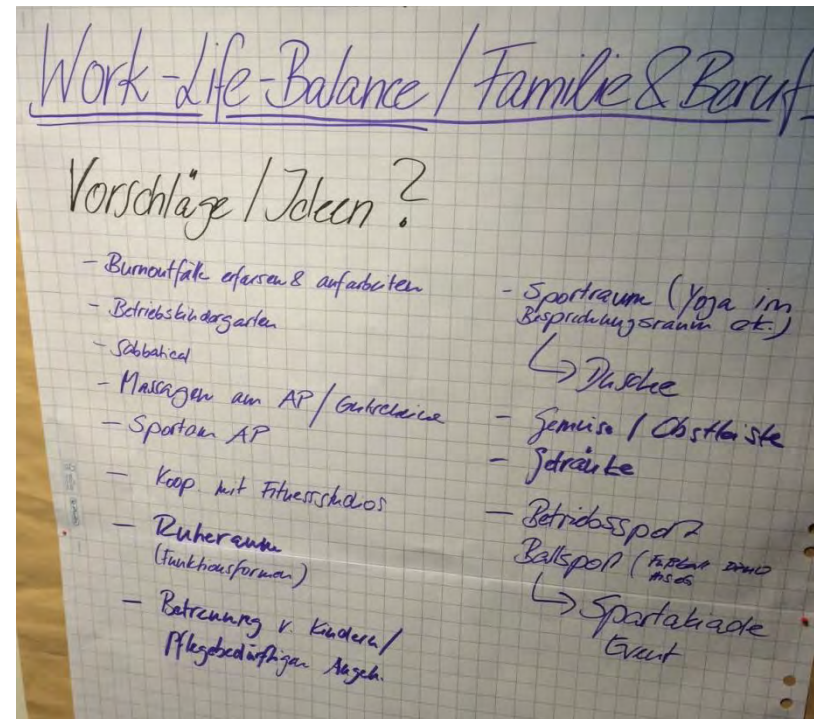 Work-Life-Balance / Familie & Beruf
Vorschläge / Ideen?
- Burnoutfälle erfassen & aufarbeiten
- Betriebskindergarten
- Sabbatical
- Massagen am AP / Gutscheine
- Sport am AP
- Koop. mit Fitnessstudios
- Ruheraum
(Funktionsformen)
- Betreuung v. Kindern /
Pflegebedürftigen Angeh.
- Sportraum (Yoga im
Besprechungsraum ok.)
↳ Dusche
- Gemüse / Obstkiste
- Getränke
- Betriebssport
Ballsport (Fußball
↳ Spartakiade
Event